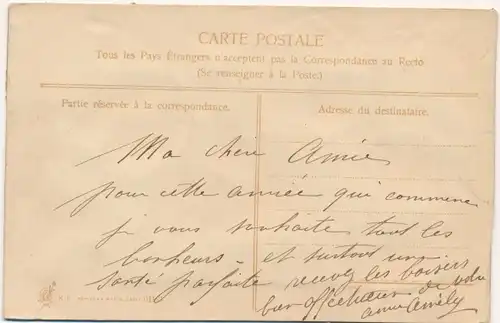 CARTE POSTALE
Tous les Pays Étrangers n'acceptent pas la Correspondance au Recto
(Se renseigner à la Poste.)
Partie réservée à la correspondance.
Adresse du destinataire.
Ma chère Amie
pour cette année qui commence
je vous souhaite tout les
bonheurs - et surtout une
santé parfaite recevez les baisers
bien affectueux de votre
amie